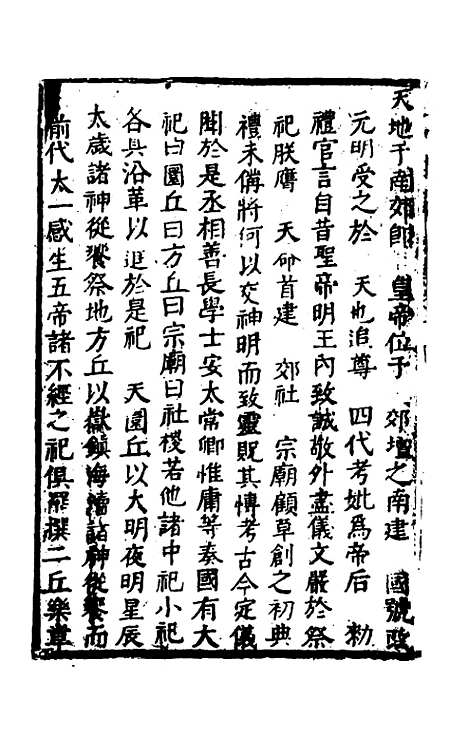 天地于南郊即　皇帝位于　郊壇之南建　國號改
元明受之於　天也追尊　四代考妣爲帝后　勑
禮官言自昔聖帝明王內致誠敬外盡儀文嚴於祭
祀朕膺　天命首建　郊社　宗廟顧草創之初典
禮未備將何以交神明而致靈貺其愽考古今定儀
聞於是丞相善長學士安太常卿惟庸等奏國有大
祀曰圜丘曰方丘曰宗廟曰社稷若他諸中祀小祀
各具沿革以進於是祀　天圜丘以大明夜明星辰
太歲諸神從饗祭地方丘以嶽鎮海瀆諸神從饗而
前代太一感生五帝諸不經之祀俱罷撰二丘樂章